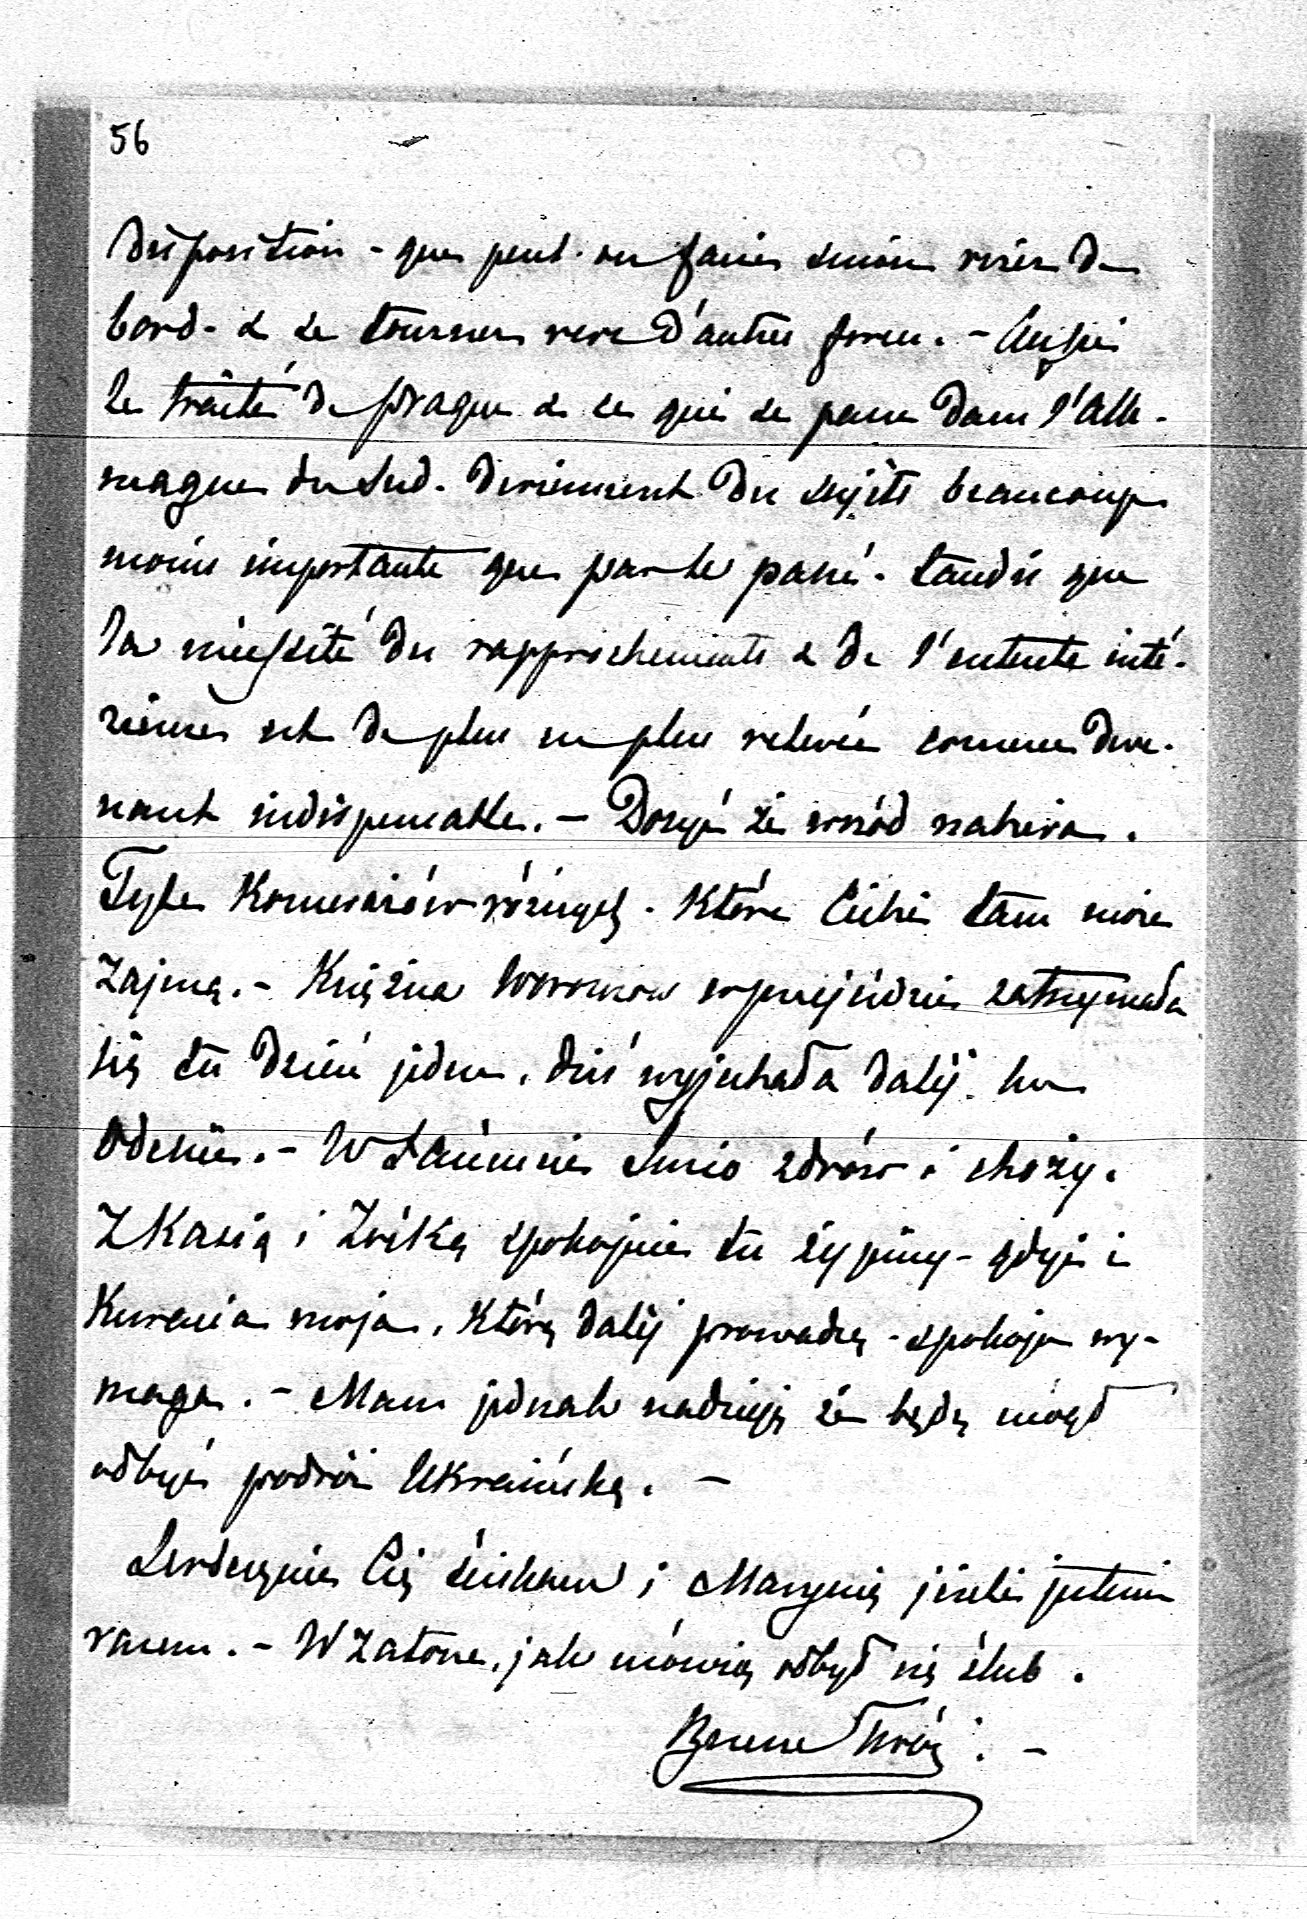 56
disposition - que peut-on faire sinon virer de
bord - & se tourner vers d'autres forces. - Aussi
le traité de Prague & ce qui se passe dans l'Alle-
magne du Sud - deviennent des sujets beaucoup
moins importants que par le passé - tandis que
la nécessité des rapprochements & de l'entente inté-
rieure est de plus en plus relevée comme deve-
nant indispensable. - Dosyć że wśród
Tyle Komerażów różnych - które Ciebie tam może
zajmą. - Księżna Woroncow zatrzymała
się tu dzień jeden, dziś wyjechała dalej ku
Odessie. - W Łańcucie zdrów i choży.
Z Kasią i Zośką spokojnie tu żyjemy - gdyż i
Kuracia moja, którą dalej prowadzę - spokoju wy-
maga. - Mam jednak nadzieję że będę mógł
odbyć podróż Ukraińską. -
Serdecznie Cię ściskam i Marynię jeżeli jesteście
razem. - W Zatorze, jak mówią odbył się ślub.
Twój. -